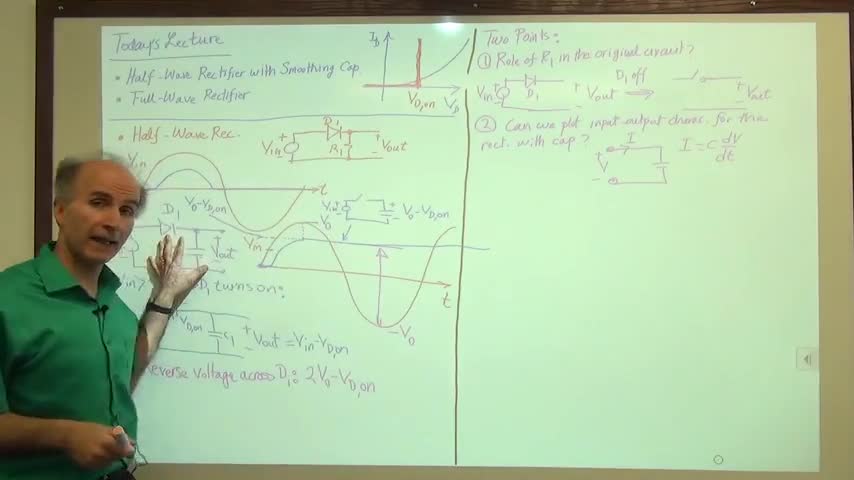 Today's Lecture
• Half-Wave Rectifier with Smoothing Cap.
• Full-Wave Rectifier
I_D
V_D,on V_D
• Half-Wave Rec.
Vin + D1 R1 + Vout -
Vin
t
V0-V_D,on
D1
+ Vout -
Vin V0
Vin + + - V0-V_D,on
t
-V0
in > D1 turns on:
V_D,on C1 + Vout - = Vin-V_D,on
everse voltage across D1: 2V0-V_D,on
Two Points:
① Role of R1 in the original circuit?
Vin + D1 + Vout - ⇒ D1 off + Vout -
② Can we plot input output charac. for the
rect. with cap?
+ V - I
I = C dV/dt